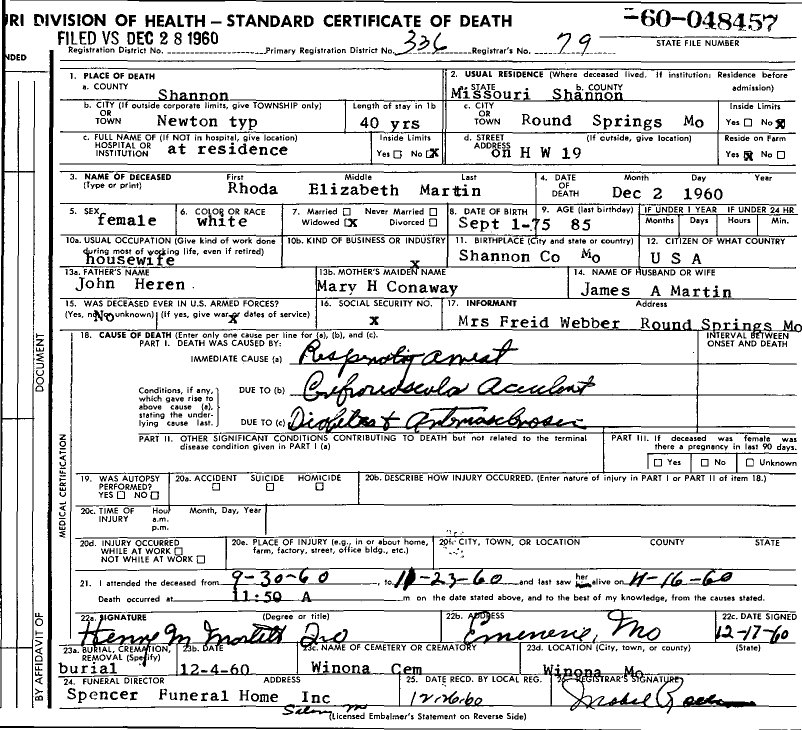 URI DIVISION OF HEALTH — STANDARD CERTIFICATE OF DEATH
-60-048457
FILED VS DEC 28 1960
Registration District No. Primary Registration District No. 336 Registrar's No. 79 STATE FILE NUMBER
NDED
1. PLACE OF DEATH
a. COUNTY Shannon
2. USUAL RESIDENCE (Where deceased lived. If institution: Residence before admission)
a. STATE Missouri b. COUNTY Shannon
b. CITY (If outside corporate limits, give TOWNSHIP only) OR TOWN Newton typ
Length of stay in 1b 40 yrs
c. CITY OR TOWN Round Springs Mo
Inside Limits Yes ☐ No ☒
c. FULL NAME OF (If NOT in hospital, give location) HOSPITAL OR INSTITUTION at residence
Inside Limits Yes ☐ No ☒
d. STREET ADDRESS (If outside, give location) on H W 19
Reside on Farm Yes ☒ No ☐
3. NAME OF DECEASED (Type or print) First Middle Last
Rhoda Elizabeth Martin
4. DATE OF DEATH Month Day Year
Dec 2 1960
5. SEX female
6. COLOR OR RACE white
7. Married ☐ Never Married ☐ Widowed ☒ Divorced ☐
8. DATE OF BIRTH Sept 1-75
9. AGE (last birthday) 85
IF UNDER 1 YEAR Months Days
IF UNDER 24 HR Hours Min.
10a. USUAL OCCUPATION (Give kind of work done during most of working life, even if retired) housewife
10b. KIND OF BUSINESS OR INDUSTRY x
11. BIRTHPLACE (City and state or country) Shannon Co Mo
12. CITIZEN OF WHAT COUNTRY U S A
13a. FATHER'S NAME John Heren
13b. MOTHER'S MAIDEN NAME Mary H Conaway
14. NAME OF HUSBAND OR WIFE James A Martin
15. WAS DECEASED EVER IN U.S. ARMED FORCES? (Yes, no, unknown) (If yes, give war or dates of service) No x
16. SOCIAL SECURITY NO. x
17. INFORMANT Address
Mrs Freid Webber Round Springs Mo
18. CAUSE OF DEATH (Enter only one cause per line for (a), (b), and (c).
PART I. DEATH WAS CAUSED BY:
INTERVAL BETWEEN ONSET AND DEATH
IMMEDIATE CAUSE (a) Respiratory arrest
Conditions, if any, which gave rise to above cause (a), stating the underlying cause last.
DUE TO (b) Accident
DUE TO (c) Diabetes +
PART II. OTHER SIGNIFICANT CONDITIONS CONTRIBUTING TO DEATH but not related to the terminal disease condition given in PART I (a)
PART III. If deceased was female was there a pregnancy in last 90 days.
☐ Yes ☐ No ☐ Unknown
19. WAS AUTOPSY PERFORMED? YES ☐ NO ☐
20a. ACCIDENT ☐ SUICIDE ☐ HOMICIDE ☐
20b. DESCRIBE HOW INJURY OCCURRED. (Enter nature of injury in PART I or PART II of item 18.)
20c. TIME OF INJURY Hour a.m. p.m. Month, Day, Year
20d. INJURY OCCURRED WHILE AT WORK ☐ NOT WHILE AT WORK ☐
20e. PLACE OF INJURY (e.g., in or about home, farm, factory, street, office bldg., etc.)
20f. CITY, TOWN, OR LOCATION COUNTY STATE
21. I attended the deceased from 9-30-60, to 11-23-60 and last saw her alive on 11-16-60
Death occurred at 11:50 A m on the date stated above, and to the best of my knowledge, from the causes stated.
22a. SIGNATURE (Degree or title) Henry M
22b. ADDRESS Mo
22c. DATE SIGNED 12-17-60
23a. BURIAL, CREMATION, REMOVAL (Specify) burial
23b. DATE 12-4-60
23c. NAME OF CEMETERY OR CREMATORY Winona Cem
23d. LOCATION (City, town, or county) (State) Winona Mo
24. FUNERAL DIRECTOR ADDRESS
Spencer Funeral Home Inc
Salem Mo
25. DATE RECD. BY LOCAL REG. 12-26-60
26. REGISTRAR'S SIGNATURE Mabel
(Licensed Embalmer's Statement on Reverse Side)
DOCUMENT
MEDICAL CERTIFICATION
BY AFFIDAVIT OF